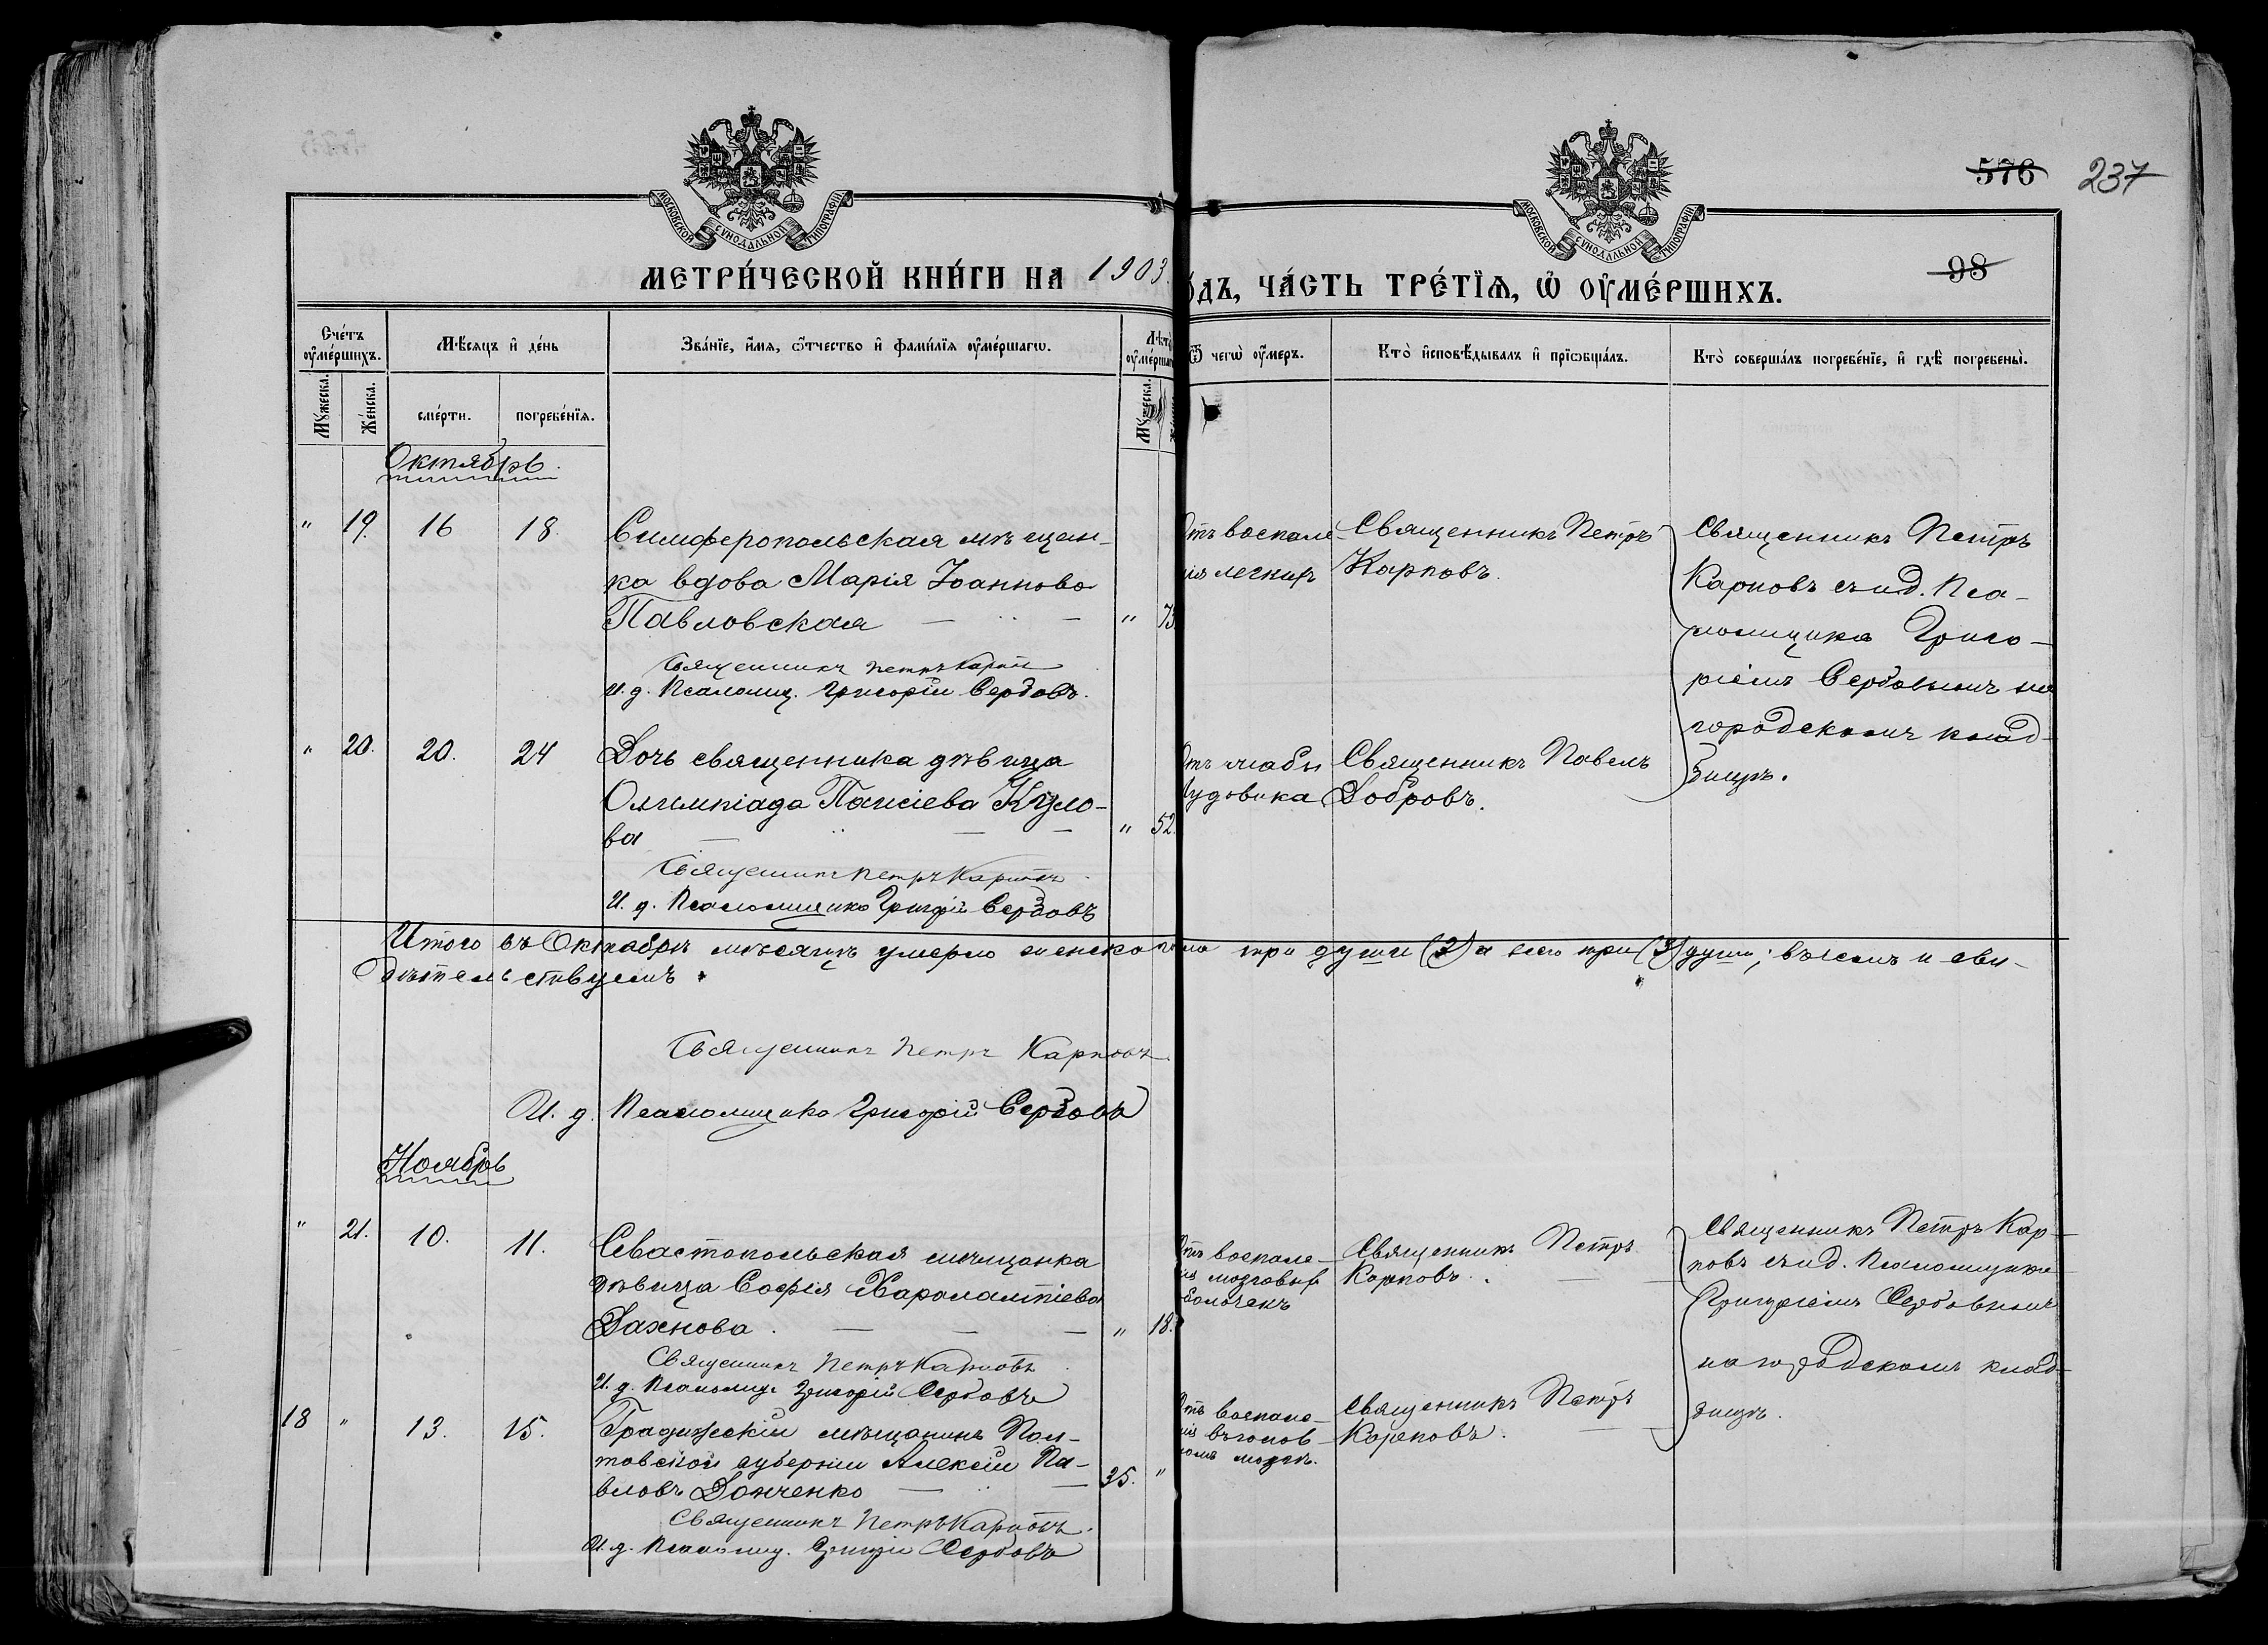 576 237
98
МОСКОВСКОЙ СУНОДАЛЬНОЙ ТИПОГРАФІИ
МОСКОВСКОЙ СУНОДАЛЬНОЙ ТИПОГРАФІИ
МЕТРИ́ЧЕСКОЙ КНИ́ГИ НА 1903.
О́ДЪ, ЧА́СТЬ ТРЕ́ТЇѦ, Ѡ҆ ОУ҆МЕ́РШИХЪ.
Сче́тъ оу҆ме́ршихъ.
Мѣ́сяцъ и҆ де́нь
Зва́нїе, и҆́мя, ѻ҆́тчество и҆ фами́лїя оу҆ме́ршагѡ.
Лѣ́та оу҆ме́ршаг
Ѿ чегѡ̀ оу҆́меръ.
Кто̀ и҆сповѣ́дывалъ и҆ прїѡбща́лъ.
Кто̀ соверша́лъ погребе́нїе, и҆ гдѣ̀ погребены̀.
Мꙋ́жеска. Же́нска.
сме́рти. погребе́нїя.
Мꙋ́жеска.
Октябрь.
" 19. 16 18.
Симферопольская мѣщан-
ка вдова Марія Іоаннова
Павловская — " 73
Священникъ Петръ Карповъ
И. д. Псаломщ. Григорій Сербовъ.
Отъ воспале-
нія легкихъ
Священникъ Петръ
Карповъ.
Священникъ Петръ
Карповъ съ и д. Пса-
ломщика Григо-
ріемъ Сербовымъ на
городскомъ клад-
бищѣ.
" 20. 20. 24
Дочь священника дѣвица
Олимпіада Паисіева Куло-
ва — " 52.
Священникъ Петръ Карповъ
И. д. Псаломщика Григорій Сербовъ
Священникъ Павелъ
Добровъ.
Итого въ Октябрѣ мѣсяцѣ умерло женска пола три души (3) а всего три (3) души; въ чемъ и сви-
дѣтельствуемъ.
Священникъ Петръ Карповъ
И. д. Псаломщика Григорій Сербовъ
Ноябрь
" 21. 10. 11.
Севастопольская мѣщанка
дѣвица Софія Харалампіева
Дахнова. — — — " 18.
Священникъ Петръ Карповъ
И. д. Псаломщ. Григорій Сербовъ
Отъ воспале-
нія мозговыхъ
оболочекъ
Священникъ Петръ
Карповъ.
Священникъ Петръ Кар-
повъ съ и д. Псаломщика
Григоріемъ Сербовымъ
на городскомъ клад-
бищѣ.
18 " 13. 15.
Градижскій мѣщанинъ Пол-
тавской губерніи Алексій Па-
вловъ Донченко — — 35. "
Священникъ Петръ Карповъ.
И. д. Псаломщ. Григорій Сербовъ
Отъ воспале-
нія въ голов-
номъ мозгѣ.
Священникъ Петръ
Карповъ.